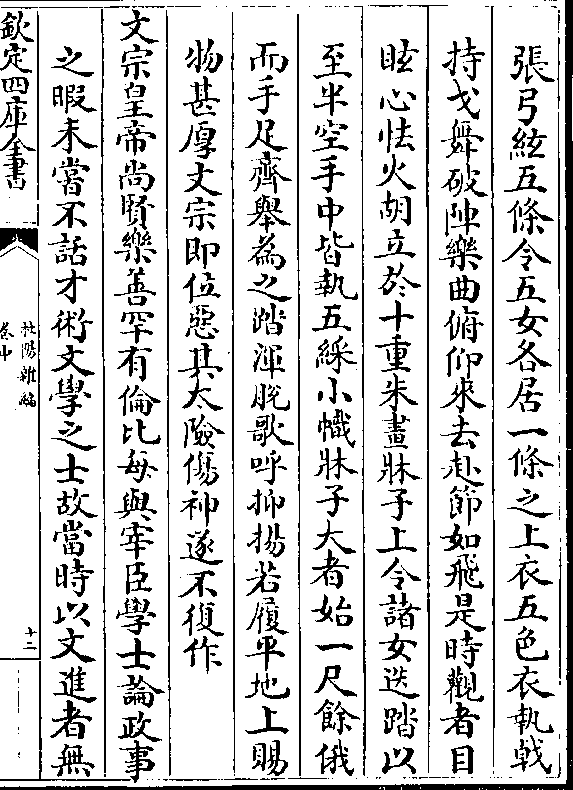 張弓絃五條令五女各居一條之上衣五色衣執戟
持戈舞破陣樂曲俯仰來去赴節如飛是時觀者目
眩心怯火胡立於十重朱畫牀子上令諸女迭踏以
至半空手中皆執五綵小幟牀子大者始一尺餘俄
而手足齊舉為之踏渾脫歌呼抑揚若履平地上賜
物甚厚文宗即位惡其太險傷神遂不復作
文宗皇帝尚賢樂善罕有倫比每與宰臣學士論政事
之暇未嘗不話才術文學之士故當時以文進者無
欽定四庫全書
杜陽雜編
卷中
十二